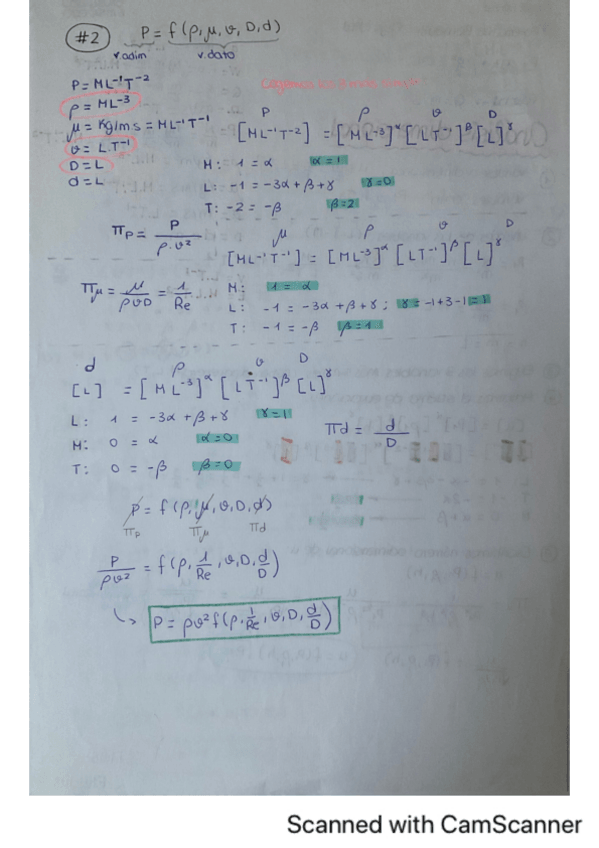 #2 P = f(ρ, μ, υ, D, d)
v.adim v.dato
P = ML⁻¹T⁻²
ρ = ML⁻³
μ = Kg/ms = ML⁻¹T⁻¹
υ = L.T⁻¹
D = L
d = L
P ρ υ D
[ML⁻¹T⁻²] = [ML⁻³]ᵅ [LT⁻¹]ᵝ [L]ᵟ
M: 1 = α α = 1
L: -1 = -3α + β + γ γ = 0
T: -2 = -β β = 2
πP = P / ρ·υ²
μ ρ υ D
[ML⁻¹T⁻¹] = [ML⁻³]ᵅ [LT⁻¹]ᵝ [L]ᵟ
πμ = μ / ρυD = 1 / Re
M: 1 = α
L: -1 = -3α + β + γ ; γ = -1+3-1 = 1
T: -1 = -β β = 1
d ρ υ D
[L] = [ML⁻³]ᵅ [LT⁻¹]ᵝ [L]ᵟ
L: 1 = -3α + β + γ γ = 1
M: 0 = α α = 0
T: 0 = -β β = 0
πd = d / D
P = f(ρ, μ, υ, D, d)
πP πμ πd
P / ρυ² = f(ρ, 1/Re, υ, D, d/D)
↳ P = ρυ² f(ρ, 1/Re, υ, D, d/D)
Scanned with CamScanner